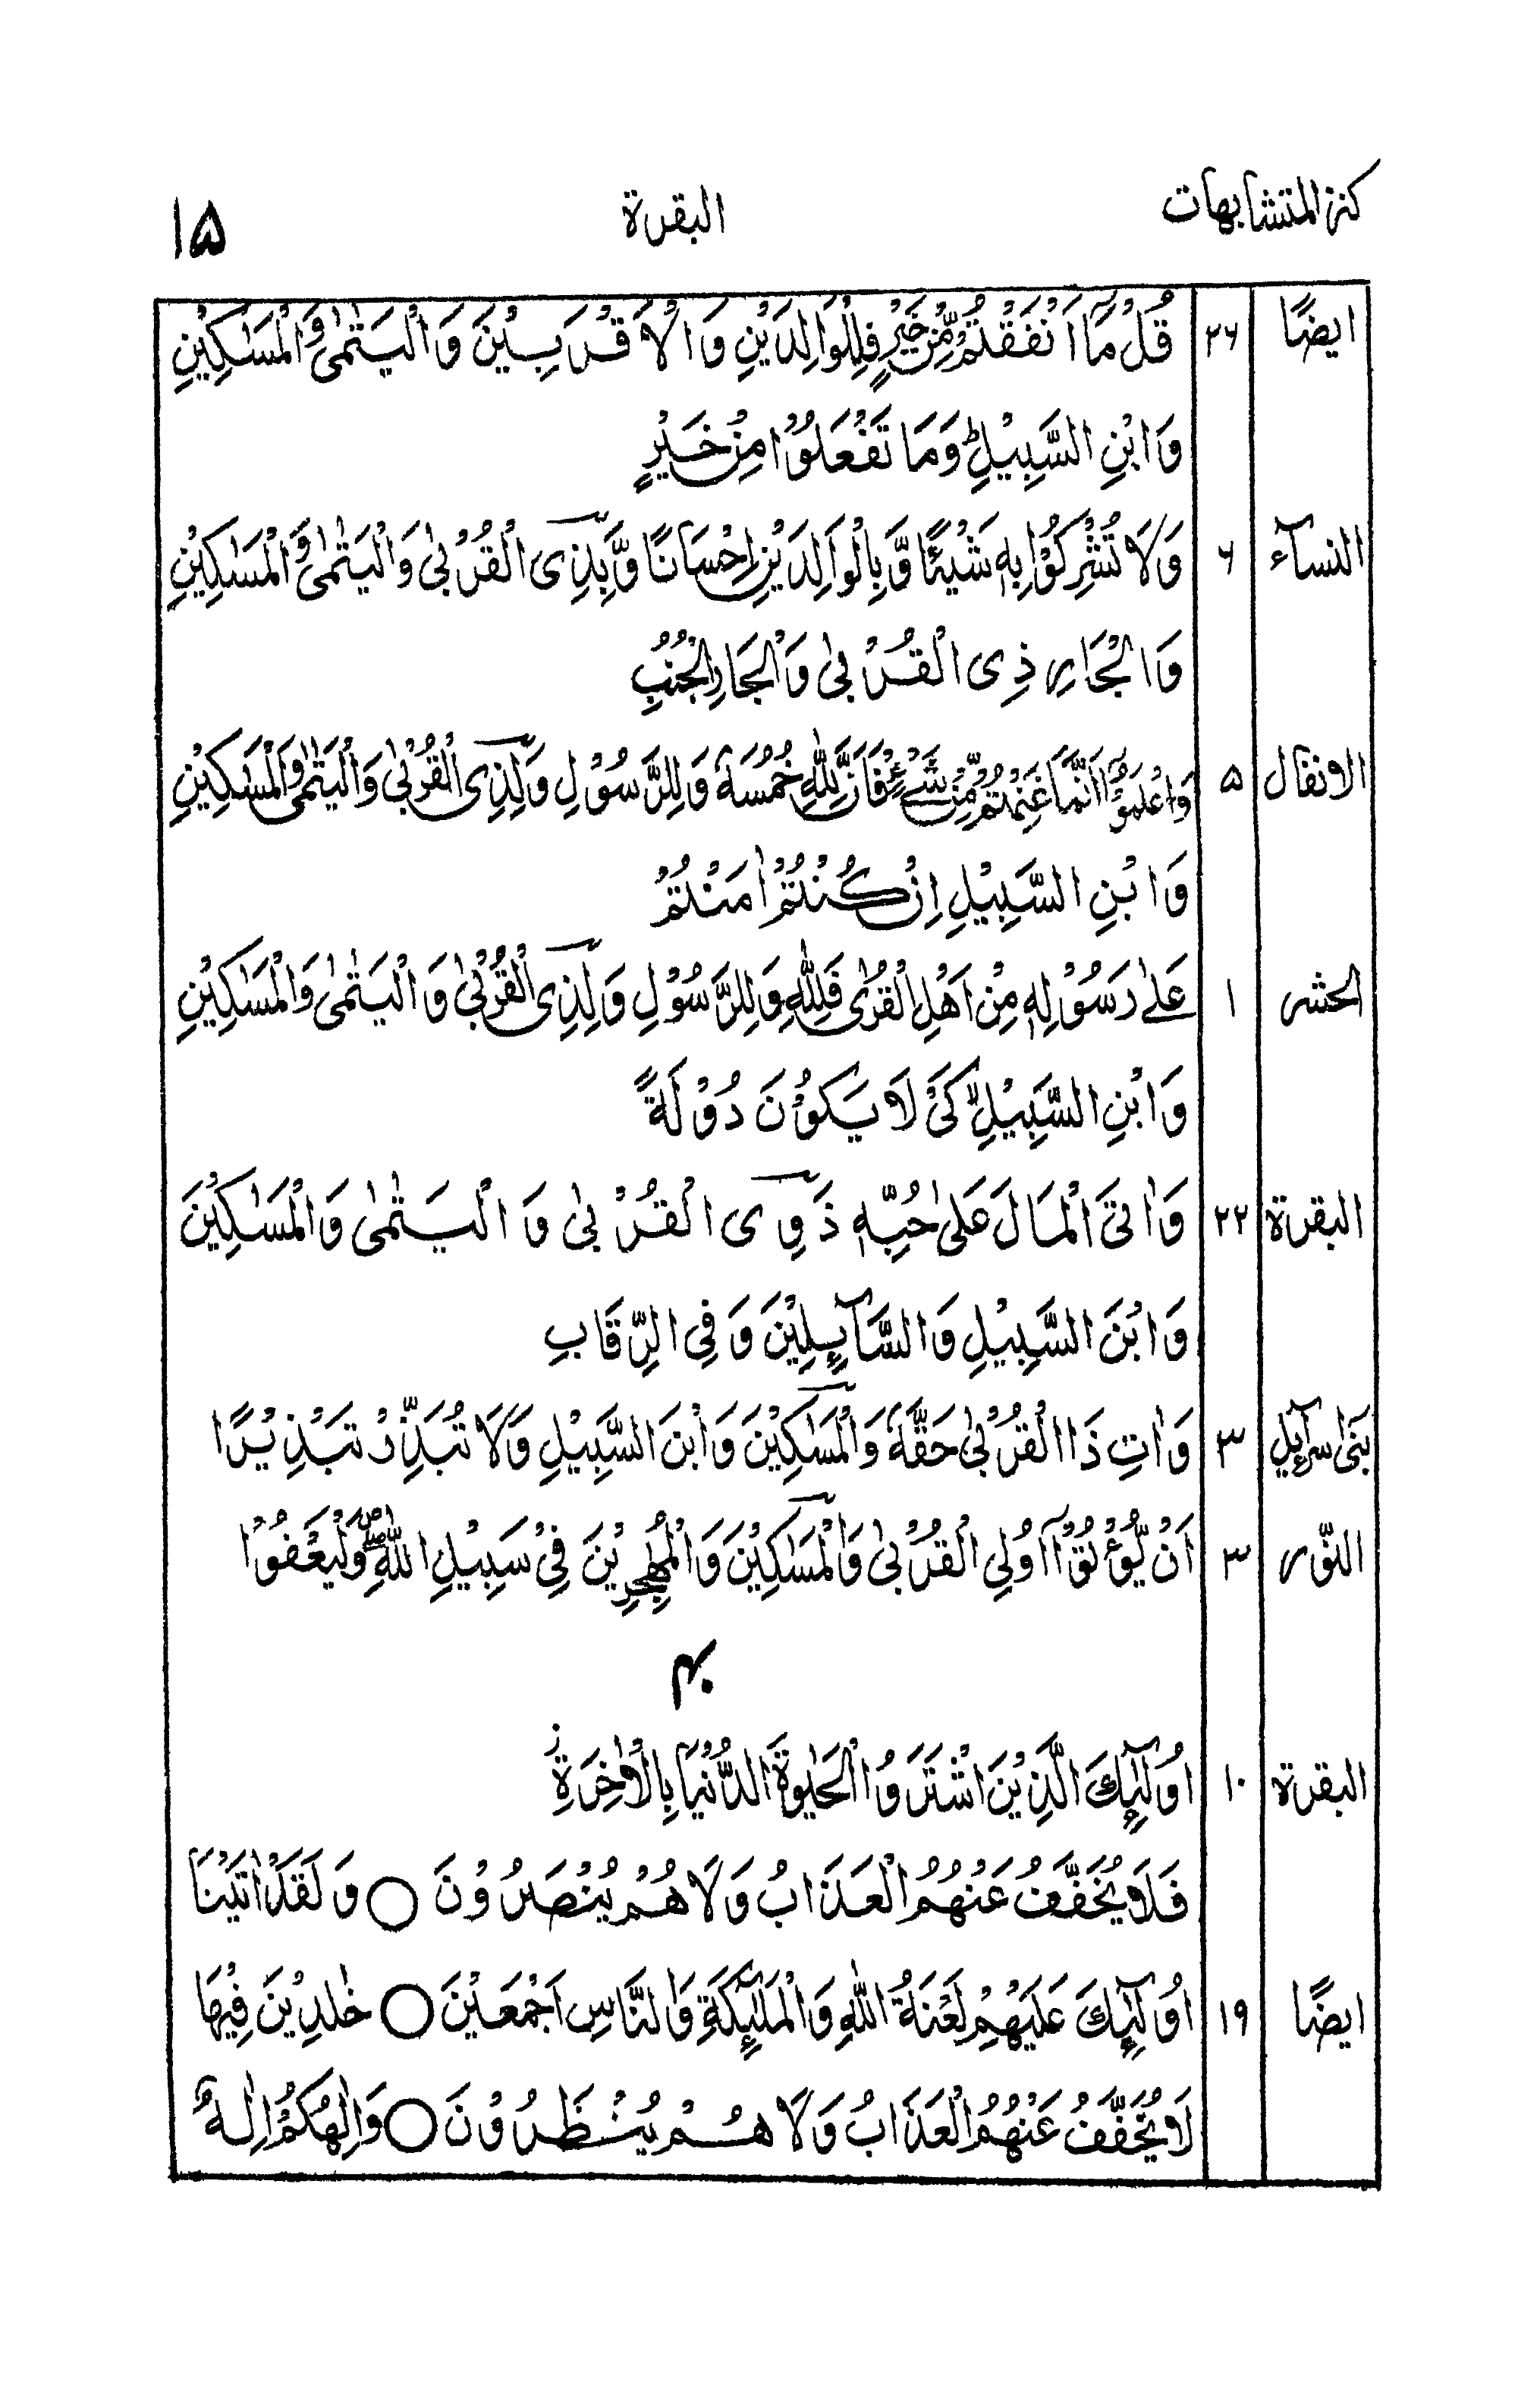 كنز المتشابهات البقرة ١٥
ايضًا ٢٦ قُلْ مَآ اَنْفَقْتُمْ مِّنْ خَيْرٍ فَلِلْوَالِدَيْنِ وَالْاَقْرَبِيْنَ وَالْيَتٰمٰى وَالْمَسٰكِيْنِ
وَابْنِ السَّبِيْلِ ؕ وَمَا تَفْعَلُوْا مِنْ خَيْرٍ
النسآء ٦ وَلَا تُشْرِكُوْا بِهٖ شَيْـًٔا وَّبِالْوَالِدَيْنِ اِحْسَانًا وَّبِذِى الْقُرْبٰى وَالْيَتٰمٰى وَالْمَسٰكِيْنِ
وَالْجَارِ ذِى الْقُرْبٰى وَالْجَارِ الْجُنُبِ
الانفال ٥ وَاعْلَمُوْٓا اَنَّمَا غَنِمْتُمْ مِّنْ شَىْءٍ فَاَنَّ لِلّٰهِ خُمُسَهٗ وَلِلرَّسُوْلِ وَلِذِى الْقُرْبٰى وَالْيَتٰمٰى وَالْمَسٰكِيْنِ
وَابْنِ السَّبِيْلِ اِنْ كُنْتُمْ اٰمَنْتُمْ
الحشر ١ عَلٰى رَسُوْلِهٖ مِنْ اَهْلِ الْقُرٰى فَلِلّٰهِ وَلِلرَّسُوْلِ وَلِذِى الْقُرْبٰى وَالْيَتٰمٰى وَالْمَسٰكِيْنِ
وَابْنِ السَّبِيْلِ ۙ كَىْ لَا يَكُوْنَ دُوْلَةً
البقرة ٢٢ وَاٰتَى الْمَالَ عَلٰى حُبِّهٖ ذَوِى الْقُرْبٰى وَالْيَتٰمٰى وَالْمَسٰكِيْنَ
وَابْنَ السَّبِيْلِ وَالسَّآىِٕلِيْنَ وَفِى الرِّقَابِ
بنىٓ اسرآءيل ٣ وَاٰتِ ذَا الْقُرْبٰى حَقَّهٗ وَالْمَسٰكِيْنَ وَابْنَ السَّبِيْلِ وَلَا تُبَذِّرْ تَبْذِيْرًا
النّور ٣ اَنْ يُّؤْتُوْٓا اُولِى الْقُرْبٰى وَالْمَسٰكِيْنَ وَالْمُهٰجِرِيْنَ فِىْ سَبِيْلِ اللّٰهِ ۖ وَلْيَعْفُوْا
٤٠
البقرة ١٠ اُولٰٓىِٕكَ الَّذِيْنَ اشْتَرَوُا الْحَيٰوةَ الدُّنْيَا بِالْاٰخِرَةِ ز
فَلَا يُخَفَّفُ عَنْهُمُ الْعَذَابُ وَلَا هُمْ يُنْصَرُوْنَ ○ وَلَقَدْ اٰتَيْنَا
ايضًا ١٩ اُولٰٓىِٕكَ عَلَيْهِمْ لَعْنَةُ اللّٰهِ وَالْمَلٰٓىِٕكَةِ وَالنَّاسِ اَجْمَعِيْنَ ○ خٰلِدِيْنَ فِيْهَا
لَا يُخَفَّفُ عَنْهُمُ الْعَذَابُ وَلَا هُمْ يُنْظَرُوْنَ ○ وَاِلٰهُكُمْ اِلٰهٌ